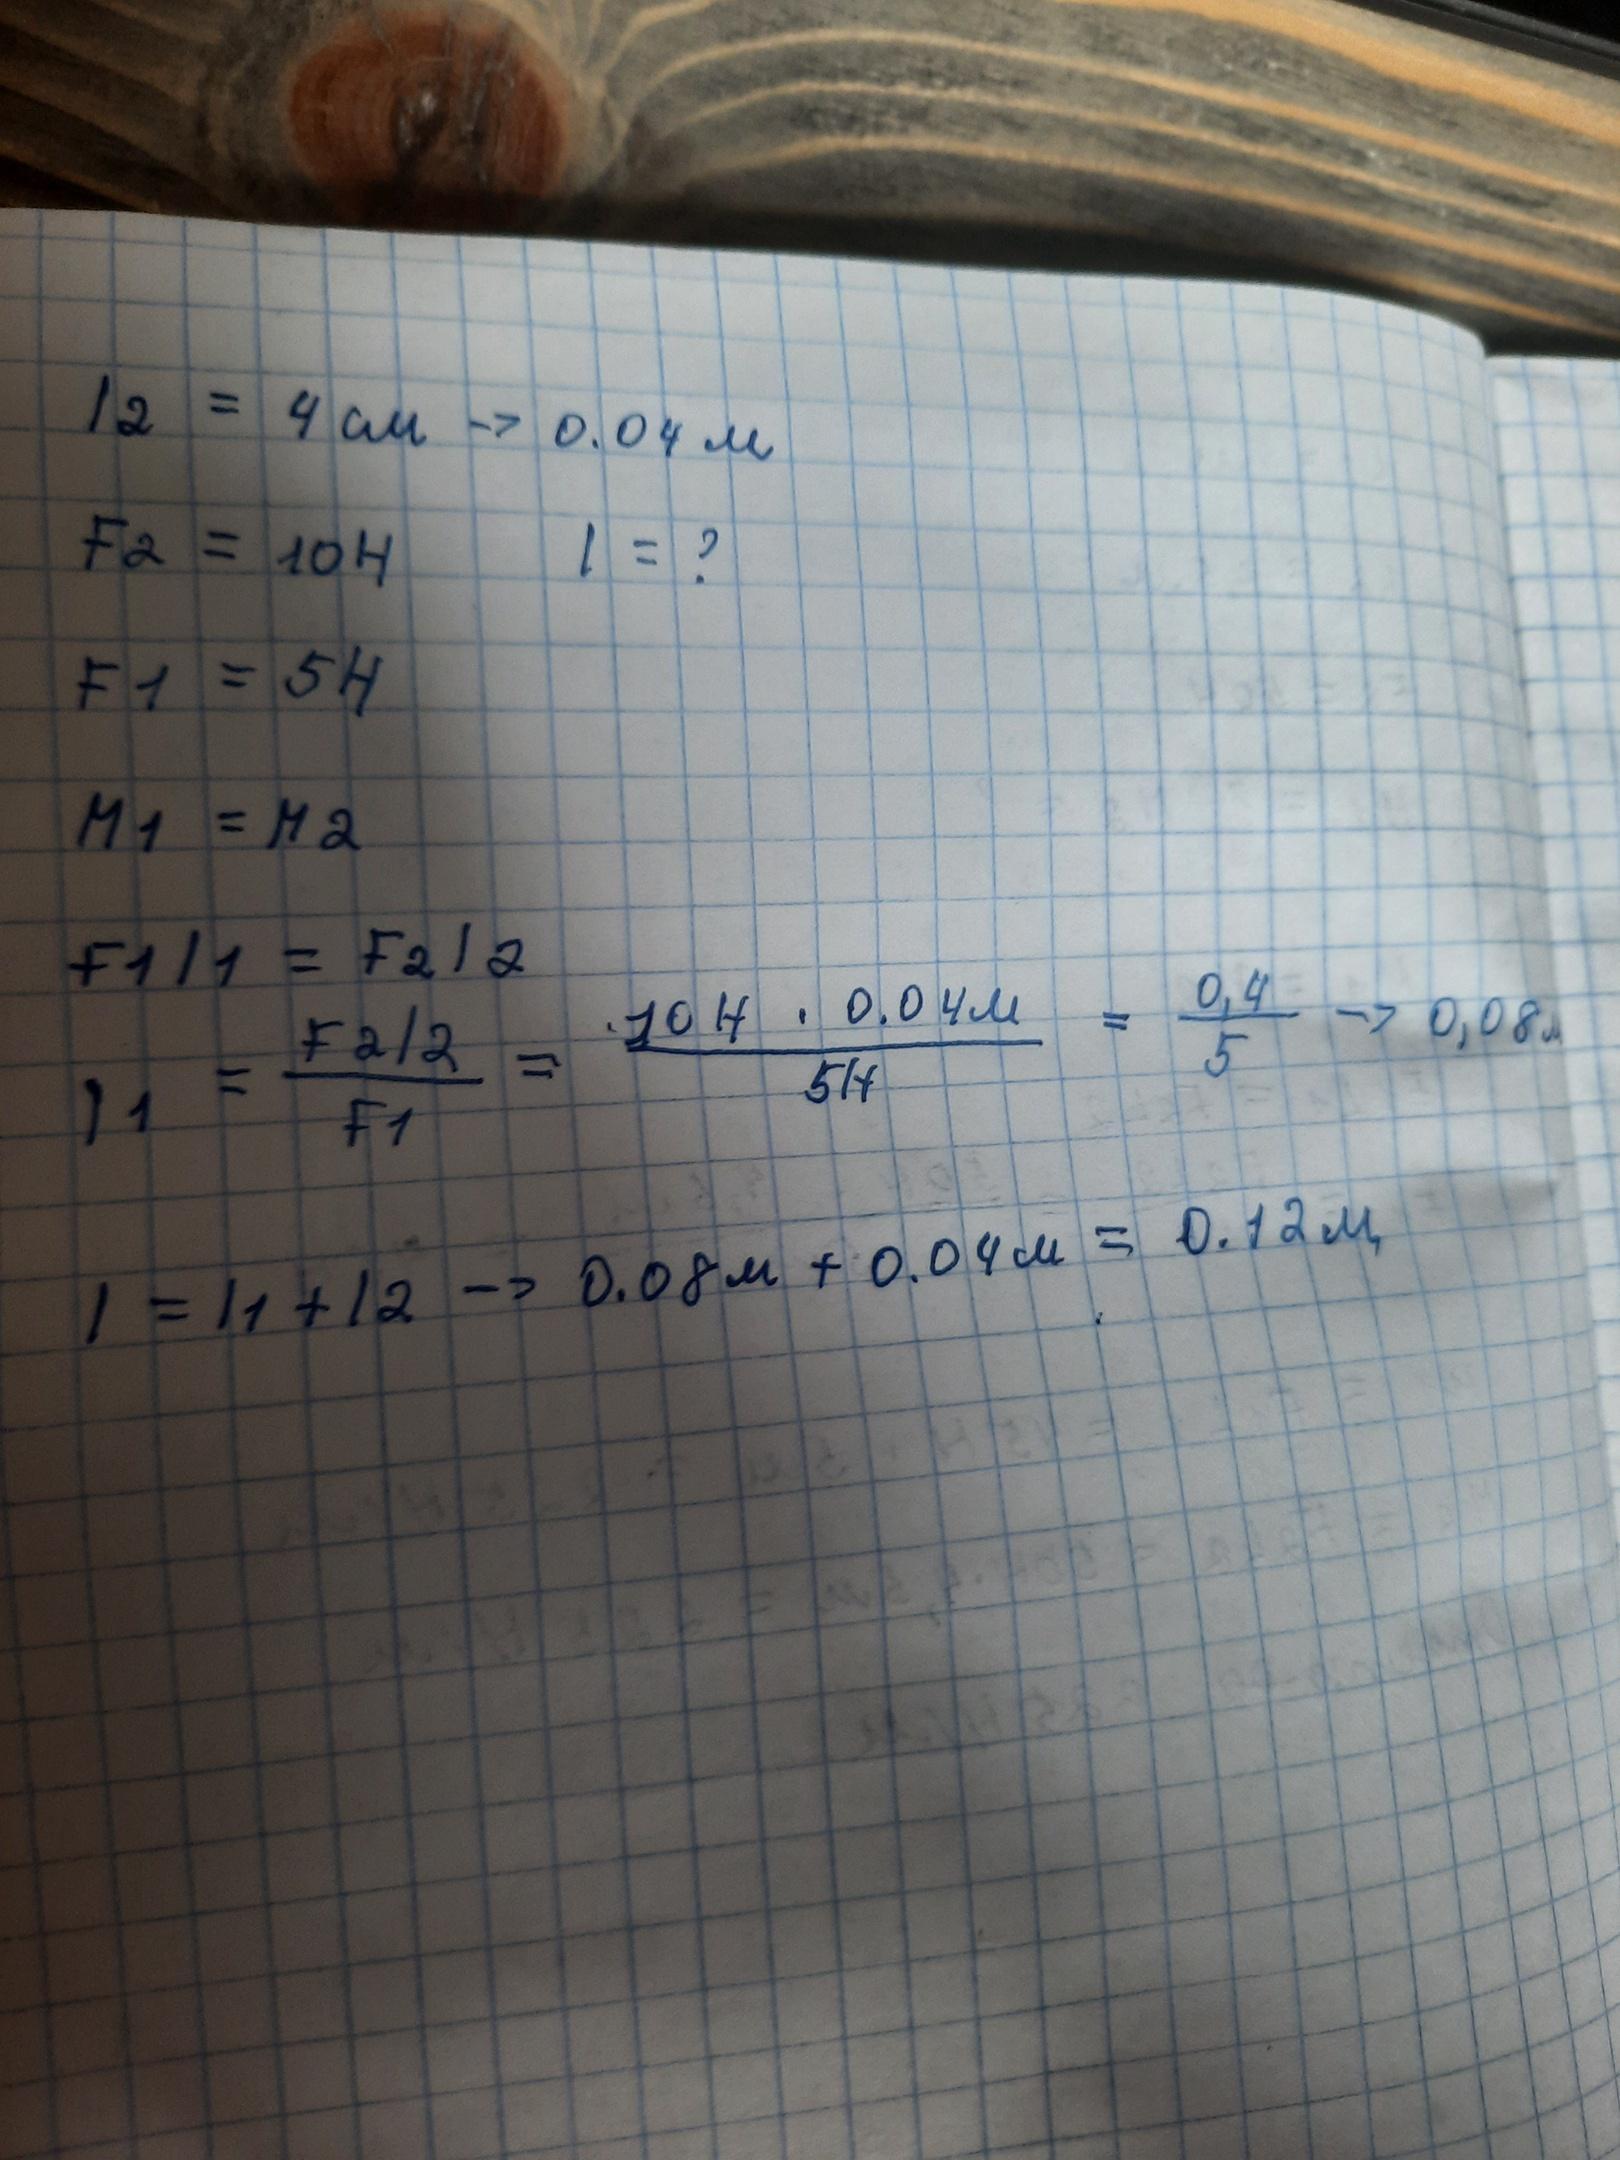 l2 = 4 см -> 0.04 м
F2 = 10Н l = ?
F1 = 5Н
М1 = М2
F1 l1 = F2 l2
l1 = F2 l2 / F1 = 10 Н · 0.04м / 5Н = 0,4 / 5 -> 0,08м
l = l1 + l2 -> 0.08м + 0.04м = 0.12м